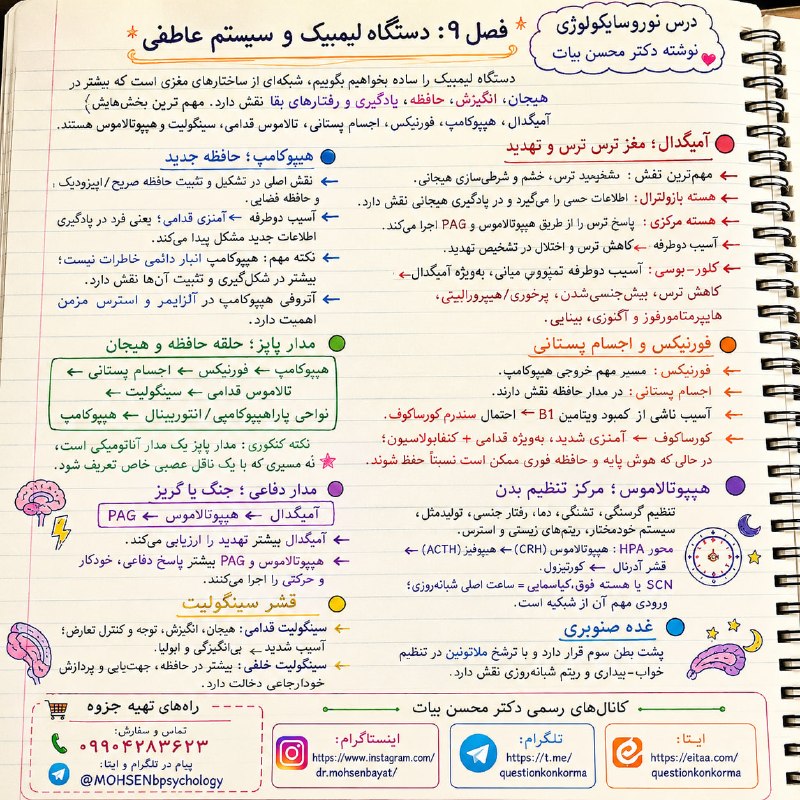 درس نوروسایکولوژی
نوشته دکتر محسن بیات
فصل ۹: دستگاه لیمبیک و سیستم عاطفی
دستگاه لیمبیک را ساده بخواهیم بگوییم، شبکه‌ای از ساختارهای مغزی است که بیشتر در
هیجان، انگیزش، حافظه، یادگیری و رفتارهای بقا نقش دارد. مهم ترین بخش‌هایش؛
آمیگدال، هیپوکامپ، فورنیکس، اجسام پستانی، تالاموس قدامی، سینگولیت و هیپوتالاموس هستند.
آمیگدال؛ مغز ترس ترس و تهدید
← مهم‌ترین نقش: ترس، خشم و شرطی‌سازی هیجانی.
← هسته بازولترال: اطلاعات حسی را می‌گیرد و در یادگیری هیجانی نقش دارد.
← هسته مرکزی: پاسخ ترس را از طریق هیپوتالاموس و PAG اجرا می‌کند.
← آسیب دوطرفه ← کاهش ترس و اختلال در تشخیص تهدید.
← کلور-بوسی: آسیب دوطرفه میانی، به‌ویژه آمیگدال←
کاهش ترس، بیش‌جنسی‌شدن، پرخوری/هیپرورالیتی،
هایپرمتامورفوز و آگنوزی، بینایی.
هیپوکامپ؛ حافظه جدید
← نقش اصلی در تشکیل و تثبیت حافظه صریح/اپیزودیک
و حافظه فضایی.
← آسیب دوطرفه ← آمنزی قدامی؛ یعنی فرد در یادگیری
اطلاعات جدید مشکل پیدا می‌کند.
← نکته مهم: هیپوکامپ انبار دائمی خاطرات نیست؛
بیشتر در شکل‌گیری و تثبیت آن‌ها نقش دارد.
← آتروفی هیپوکامپ در آلزایمر و استرس مزمن
اهمیت دارد.
فورنیکس و اجسام پستانی
← فورنیکس: مسیر مهم خروجی هیپوکامپ.
← اجسام پستانی: در مدار حافظه نقش دارند.
← آسیب ناشی از کمبود ویتامین B1 ← احتمال سندرم کورساکوف.
← کورساکوف ← آمنزی شدید، به‌ویژه قدامی + کنفابولاسیون؛
در حالی که هوش پایه و حافظه فوری ممکن است نسبتاً حفظ شوند.
مدار پاپز؛ حلقه حافظه و هیجان
هیپوکامپ ← فورنیکس ← اجسام پستانی ←
تالاموس قدامی ← سینگولیت ←
نواحی پاراهیپوکامپی/انتورینال ← هیپوکامپ
نکته کنکوری: مدار پاپز یک مدار آناتومیکی است،
نه مسیری که با یک ناقل عصبی خاص تعریف شود.
هیپوتالاموس؛ مرکز تنظیم بدن
تنظیم گرسنگی، تشنگی، دما، رفتار جنسی، تولیدمثل،
سیستم خودمختار، ریتم‌های زیستی و استرس.
محور HPA: هیپوتالاموس (CRH) ← هیپوفیز (ACTH) ←
قشر آدرنال ← کورتیزول.
SCN یا هسته فوق‌کیاسمایی = ساعت اصلی شبانه‌روزی؛
ورودی مهم آن از شبکیه است.
مدار دفاعی؛ جنگ یا گریز
آمیگدال ← هیپوتالاموس ← PAG
← آمیگدال بیشتر تهدید را ارزیابی می‌کند.
← هیپوتالاموس و PAG بیشتر پاسخ دفاعی، خودکار
و حرکتی را اجرا می‌کنند.
قشر سینگولیت
← سینگولیت قدامی: هیجان، انگیزش، توجه و کنترل تعارض؛
آسیب شدید ← بی‌انگیزگی و ابولیا.
← سینگولیت خلفی: بیشتر در حافظه، جهت‌یابی و پردازش
خودارجاعی دخالت دارد.
غده صنوبری
پشت بطن سوم قرار دارد و با ترشح ملاتونین در تنظیم
خواب-بیداری و ریتم شبانه‌روزی نقش دارد.
کانال‌های رسمی دکتر محسن بیات
ایتا:
https://eitaa.com/
questionkonkorma
تلگرام:
https://t.me/
questionkonkorma
اینستاگرام:
https://www.instagram.com/
dr.mohsenbayat/
راه‌های تهیه جزوه
تماس و سفارش:
۰۹۹۰۴۲۸۳۶۲۳
پیام در تلگرام و ایتا:
@MOHSENbpsychology